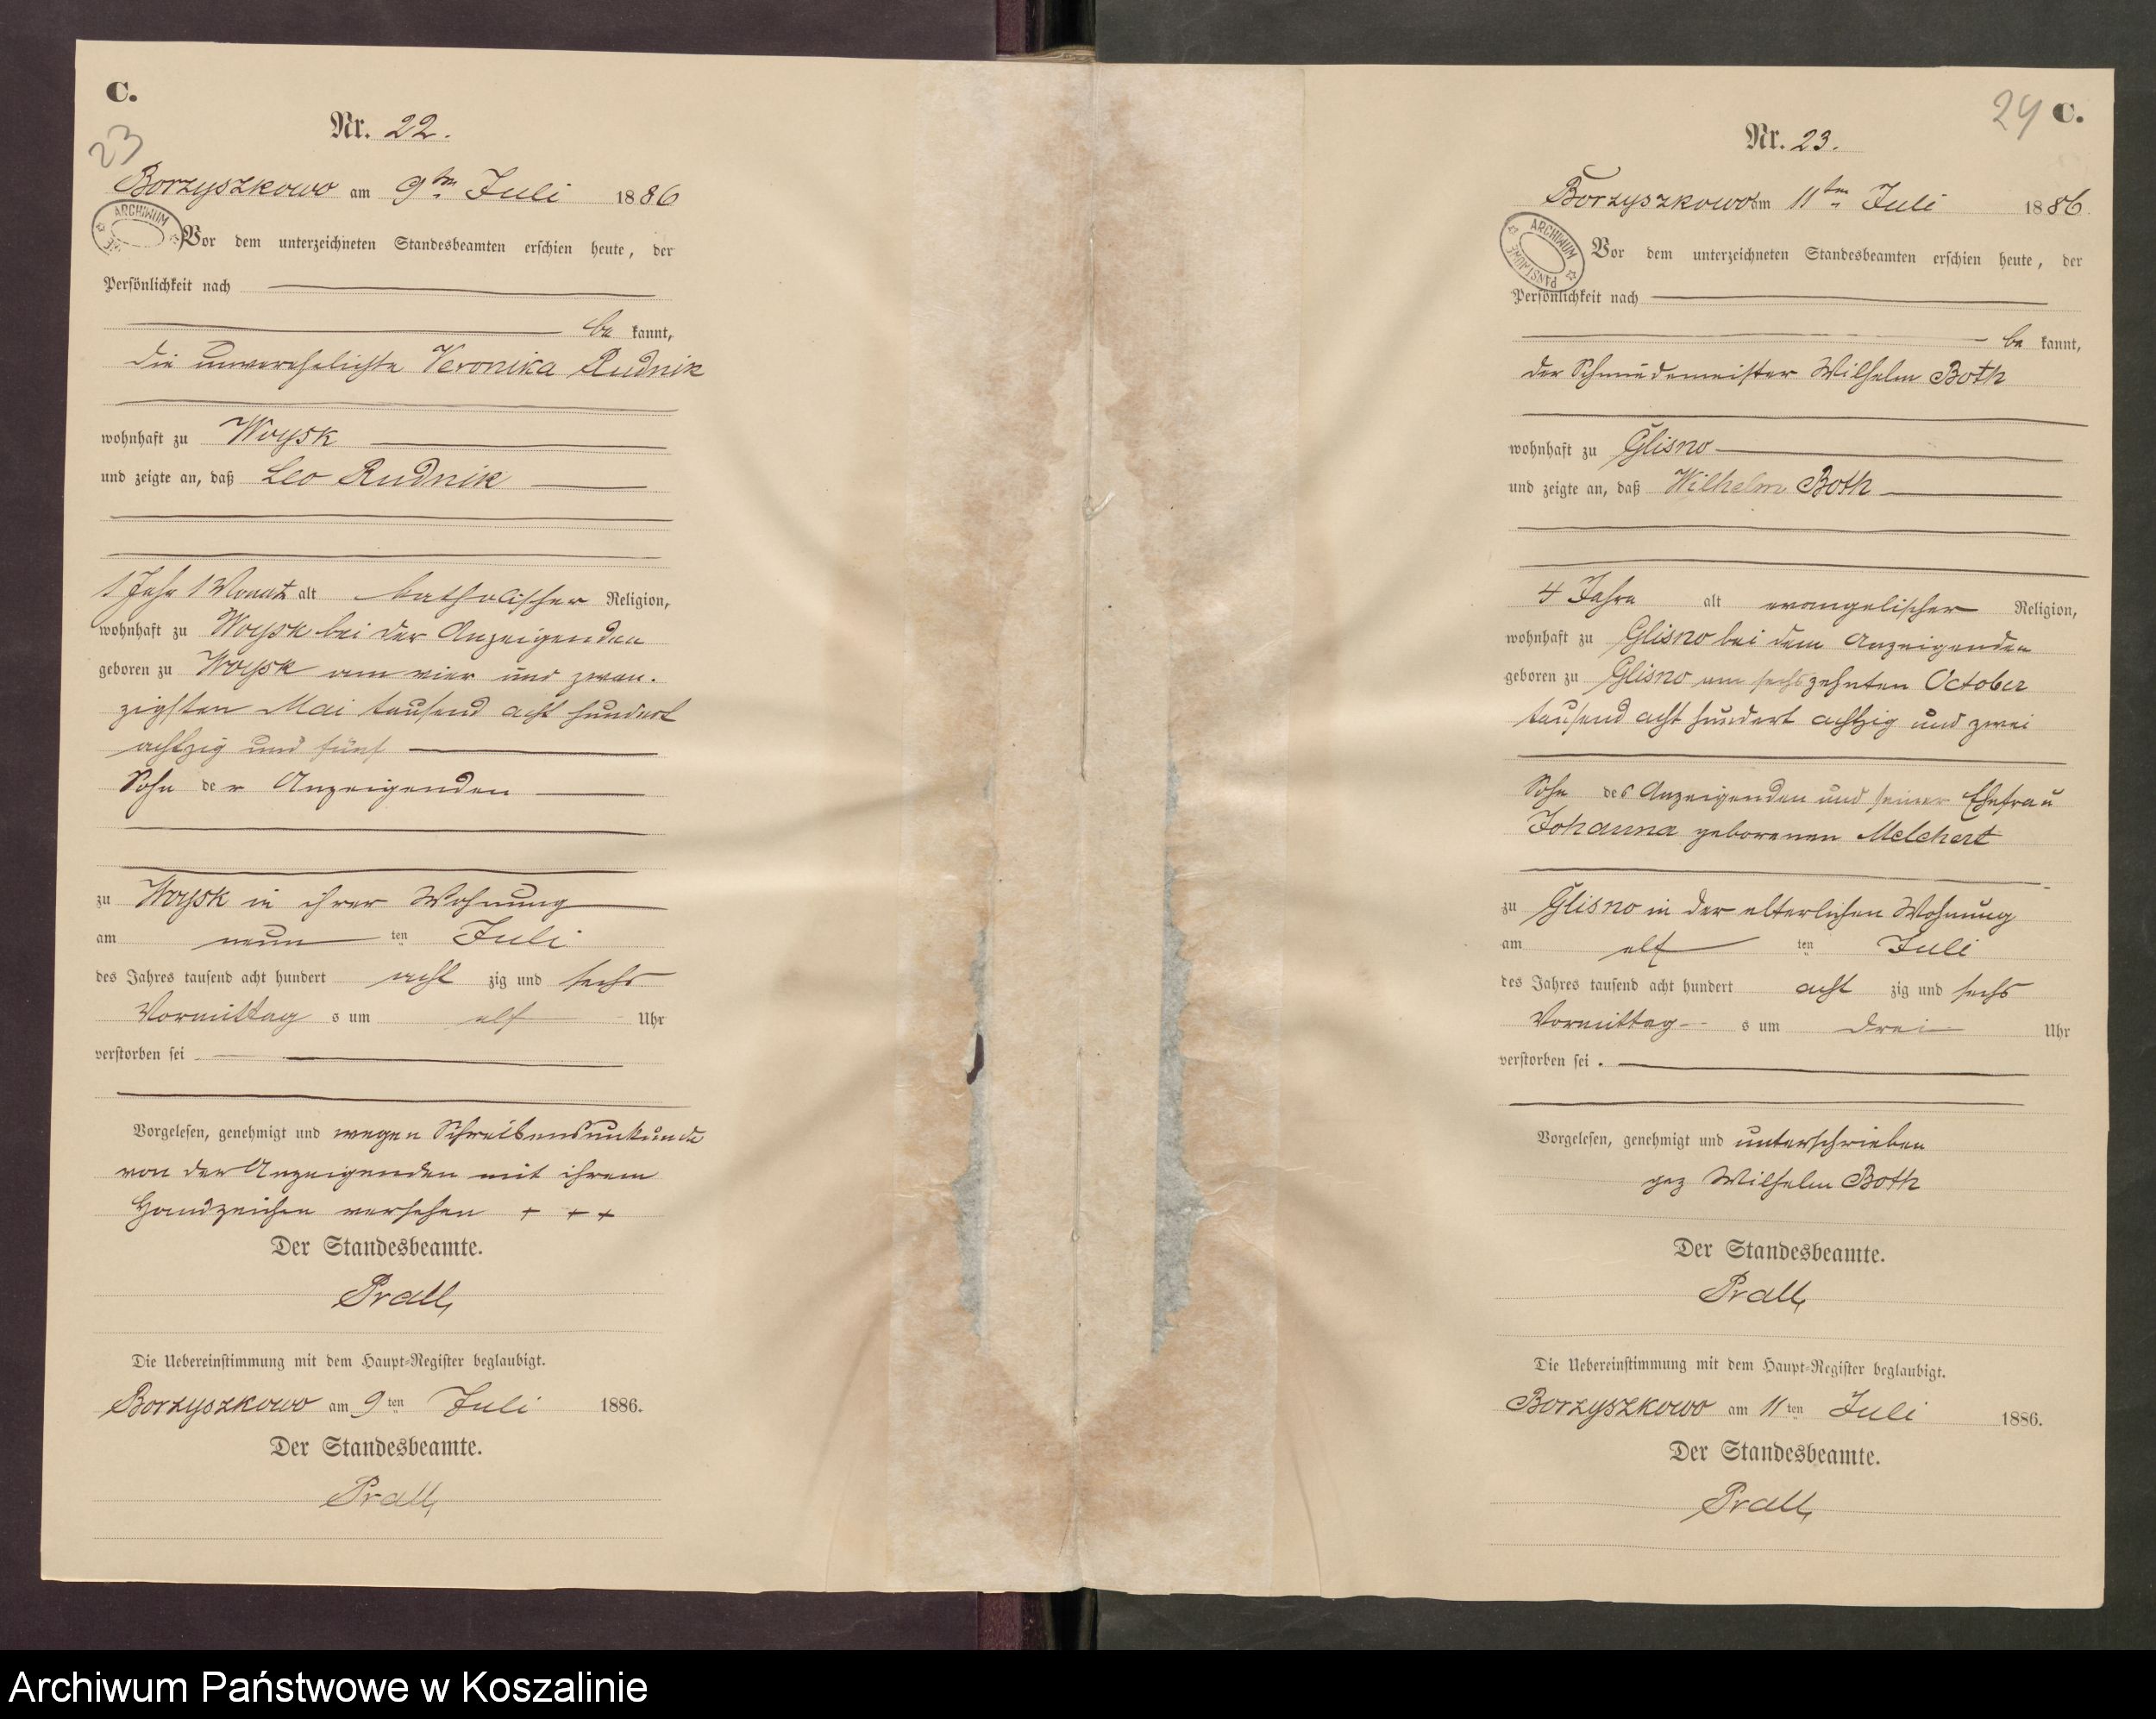 C.
23
Nr. 22.
Borzyszkowo am 9ten Juli 1886
ARCHIWUM
Vor dem unterzeichneten Standesbeamten erschien heute, der
Persönlichkeit nach
be kannt,
die unverehelichte Veronika Rudnik
wohnhaft zu Woysk
und zeigte an, daß Leo Rudnik
1 Jahr 1 Monat alt katholischer Religion,
wohnhaft zu Woysk bei der Anzeigenden
geboren zu Woysk am vier und zwan-
zigsten Mai tausend acht hundert
achtzig und fünf
Sohn der Anzeigenden
zu Woysk in ihrer Wohnung
am neun ten Juli
des Jahres tausend acht hundert acht zig und sechs
Vormittag s um elf Uhr
verstorben sei
Vorgelesen, genehmigt und wegen Schreibensunkunde
von der Anzeigenden mit ihrem
Handzeichen versehen + + +
Der Standesbeamte.
Prall
Die Uebereinstimmung mit dem Haupt-Register beglaubigt.
Borzyszkowo am 9ten Juli 1886.
Der Standesbeamte.
Prall
24 C.
Nr. 23.
Borzyszkowo am 11ten Juli 1886.
ARCHIWUM PAŃSTWOWE
Vor dem unterzeichneten Standesbeamten erschien heute, der
Persönlichkeit nach
be kannt,
der Schmiedemeister Wilhelm Both
wohnhaft zu Glisno
und zeigte an, daß Wilhelm Both
4 Jahre alt evangelischer Religion,
wohnhaft zu Glisno bei dem Anzeigenden
geboren zu Glisno am sechszehnten October
tausend acht hundert achtzig und zwei
Sohn des Anzeigenden und seiner Ehefrau
Johanna geborenen Melchert
zu Glisno in der elterlichen Wohnung
am elf ten Juli
des Jahres tausend acht hundert acht zig und sechs
Vormittag s um drei Uhr
verstorben sei.
Vorgelesen, genehmigt und unterschrieben
gez Wilhelm Both
Der Standesbeamte.
Prall
Die Uebereinstimmung mit dem Haupt-Register beglaubigt.
Borzyszkowo am 11ten Juli 1886.
Der Standesbeamte.
Prall
Archiwum Państwowe w Koszalinie